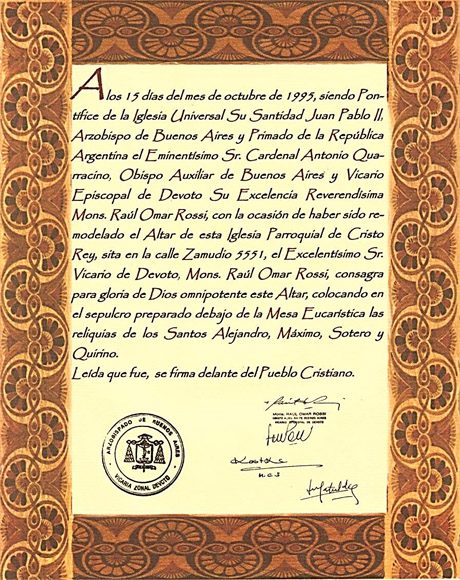 A los 15 días del mes de octubre de 1995, siendo Pon-
tífice de la Iglesia Universal Su Santidad Juan Pablo II,
Arzobispo de Buenos Aires y Primado de la República
Argentina el Eminentísimo Sr. Cardenal Antonio Qua-
rracino, Obispo Auxiliar de Buenos Aires y Vicario
Episcopal de Devoto Su Excelencia Reverendísima
Mons. Raúl Omar Rossi, con la ocasión de haber sido re-
modelado el Altar de esta Iglesia Parroquial de Cristo
Rey, sita en la calle Zamudio 5551, el Excelentísimo Sr.
Vicario de Devoto, Mons. Raúl Omar Rossi, consagra
para gloria de Dios omnipotente este Altar, colocando en
el sepulcro preparado debajo de la Mesa Eucarística las
reliquias de los Santos Alejandro, Máximo, Sotero y
Quirino.
Leída que fue, se firma delante del Pueblo Cristiano.
MONS. RAUL OMAR ROSSI
ARZOBISPADO DE BUENOS AIRES
VICARIA ZONAL DEVOTO